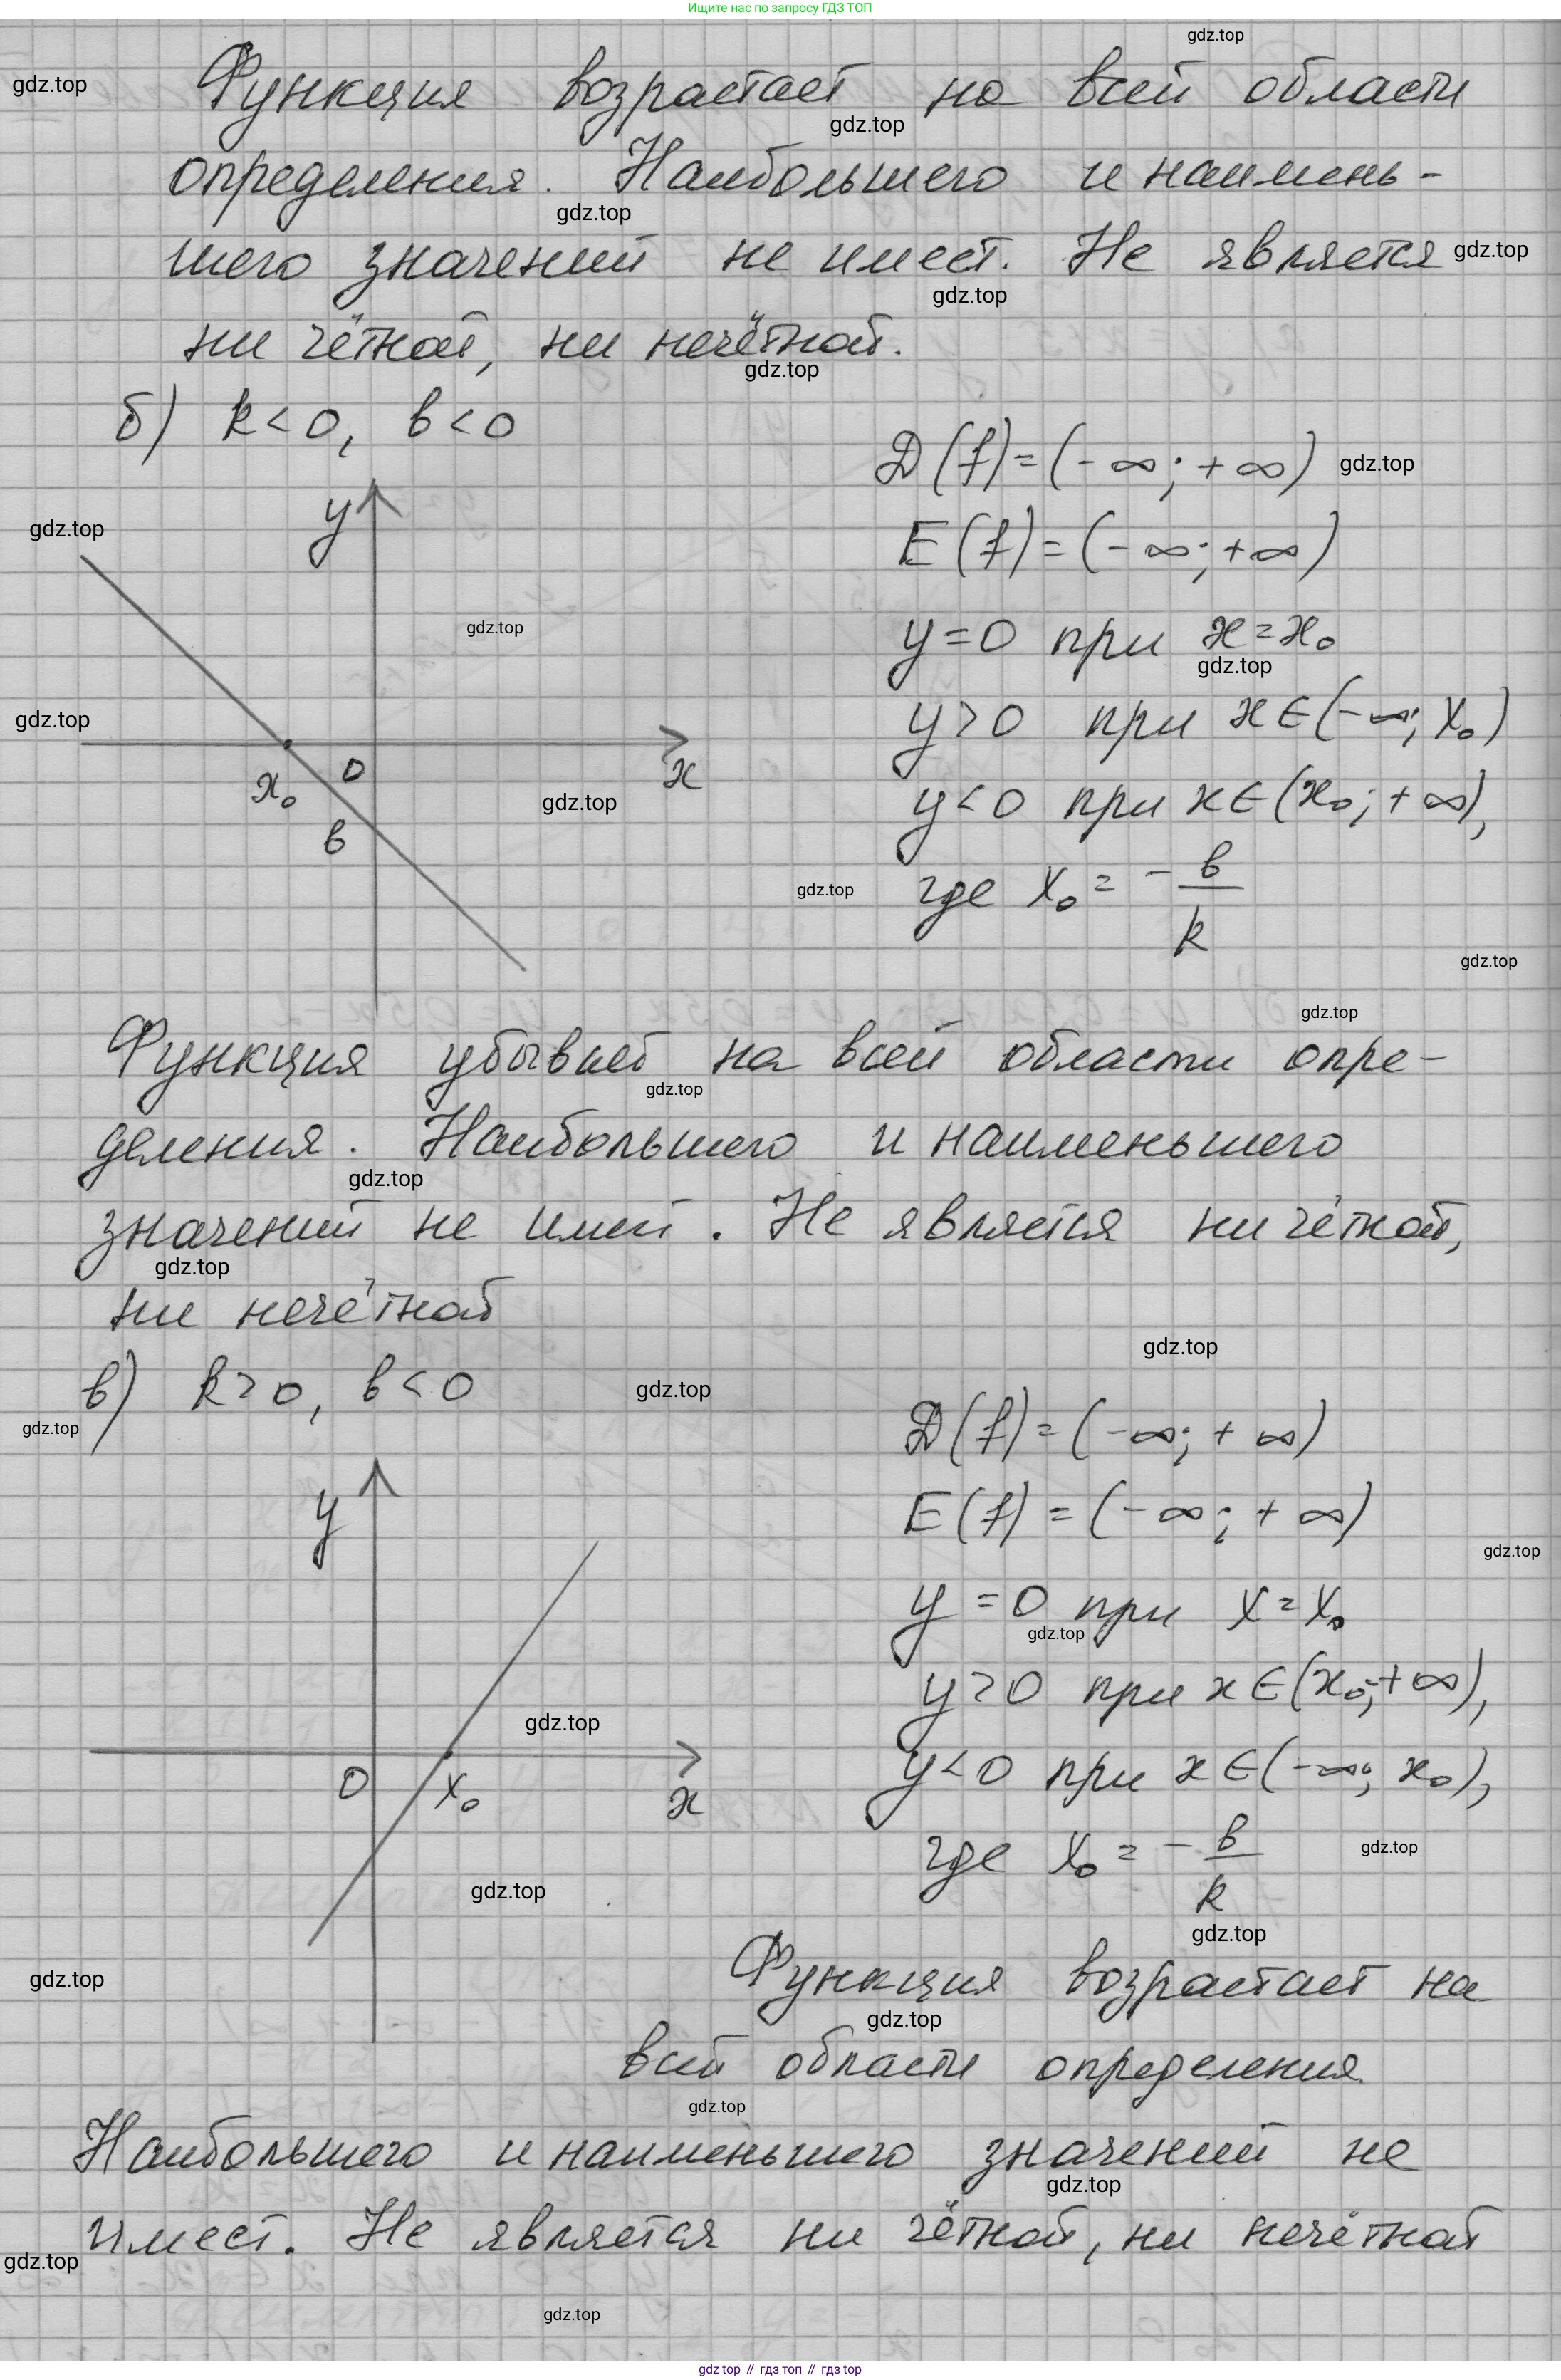 Ищите нас по запросу ГДЗ ТОП
gdz.top
gdz.top
Функция возрастает на всей области
gdz.top
определения. Наибольшего и наимень-
gdz.top
шего значений не имеет. Не является
gdz.top
gdz.top
ни чётной, ни нечётной.
gdz.top
б) k<0, b<0
D(f)=(-∞;+∞)
gdz.top
y
gdz.top
E(f)=(-∞;+∞)
gdz.top
y=0 при x=x₀
gdz.top
gdz.top
y>0 при x∈(-∞; x₀)
x₀ 0 x
gdz.top
y<0 при x∈(x₀;+∞),
b
gdz.top
где x₀ = - b/k
gdz.top
gdz.top
Функция убывает на всей области опре-
gdz.top
деления. Наибольшего и наименьшего
gdz.top
значений не имеет. Не является ни чётной,
gdz.top
ни нечётной
gdz.top
в) k>0, b<0
gdz.top
gdz.top
D(f)=(-∞;+∞)
y
E(f)=(-∞;+∞)
gdz.top
y=0 при x=x₀
gdz.top
y>0 при x∈(x₀;+∞),
gdz.top
0 x₀ x
y<0 при x∈(-∞; x₀),
где x₀ = - b/k
gdz.top
gdz.top
gdz.top
Функция возрастает на
gdz.top
gdz.top
всей области определения
gdz.top
Наибольшего и наименьшего значений не
gdz.top
имеет. Не является ни чётной, ни нечётной
gdz.top
gdz.top
gdz top // гдз топ // гдз top